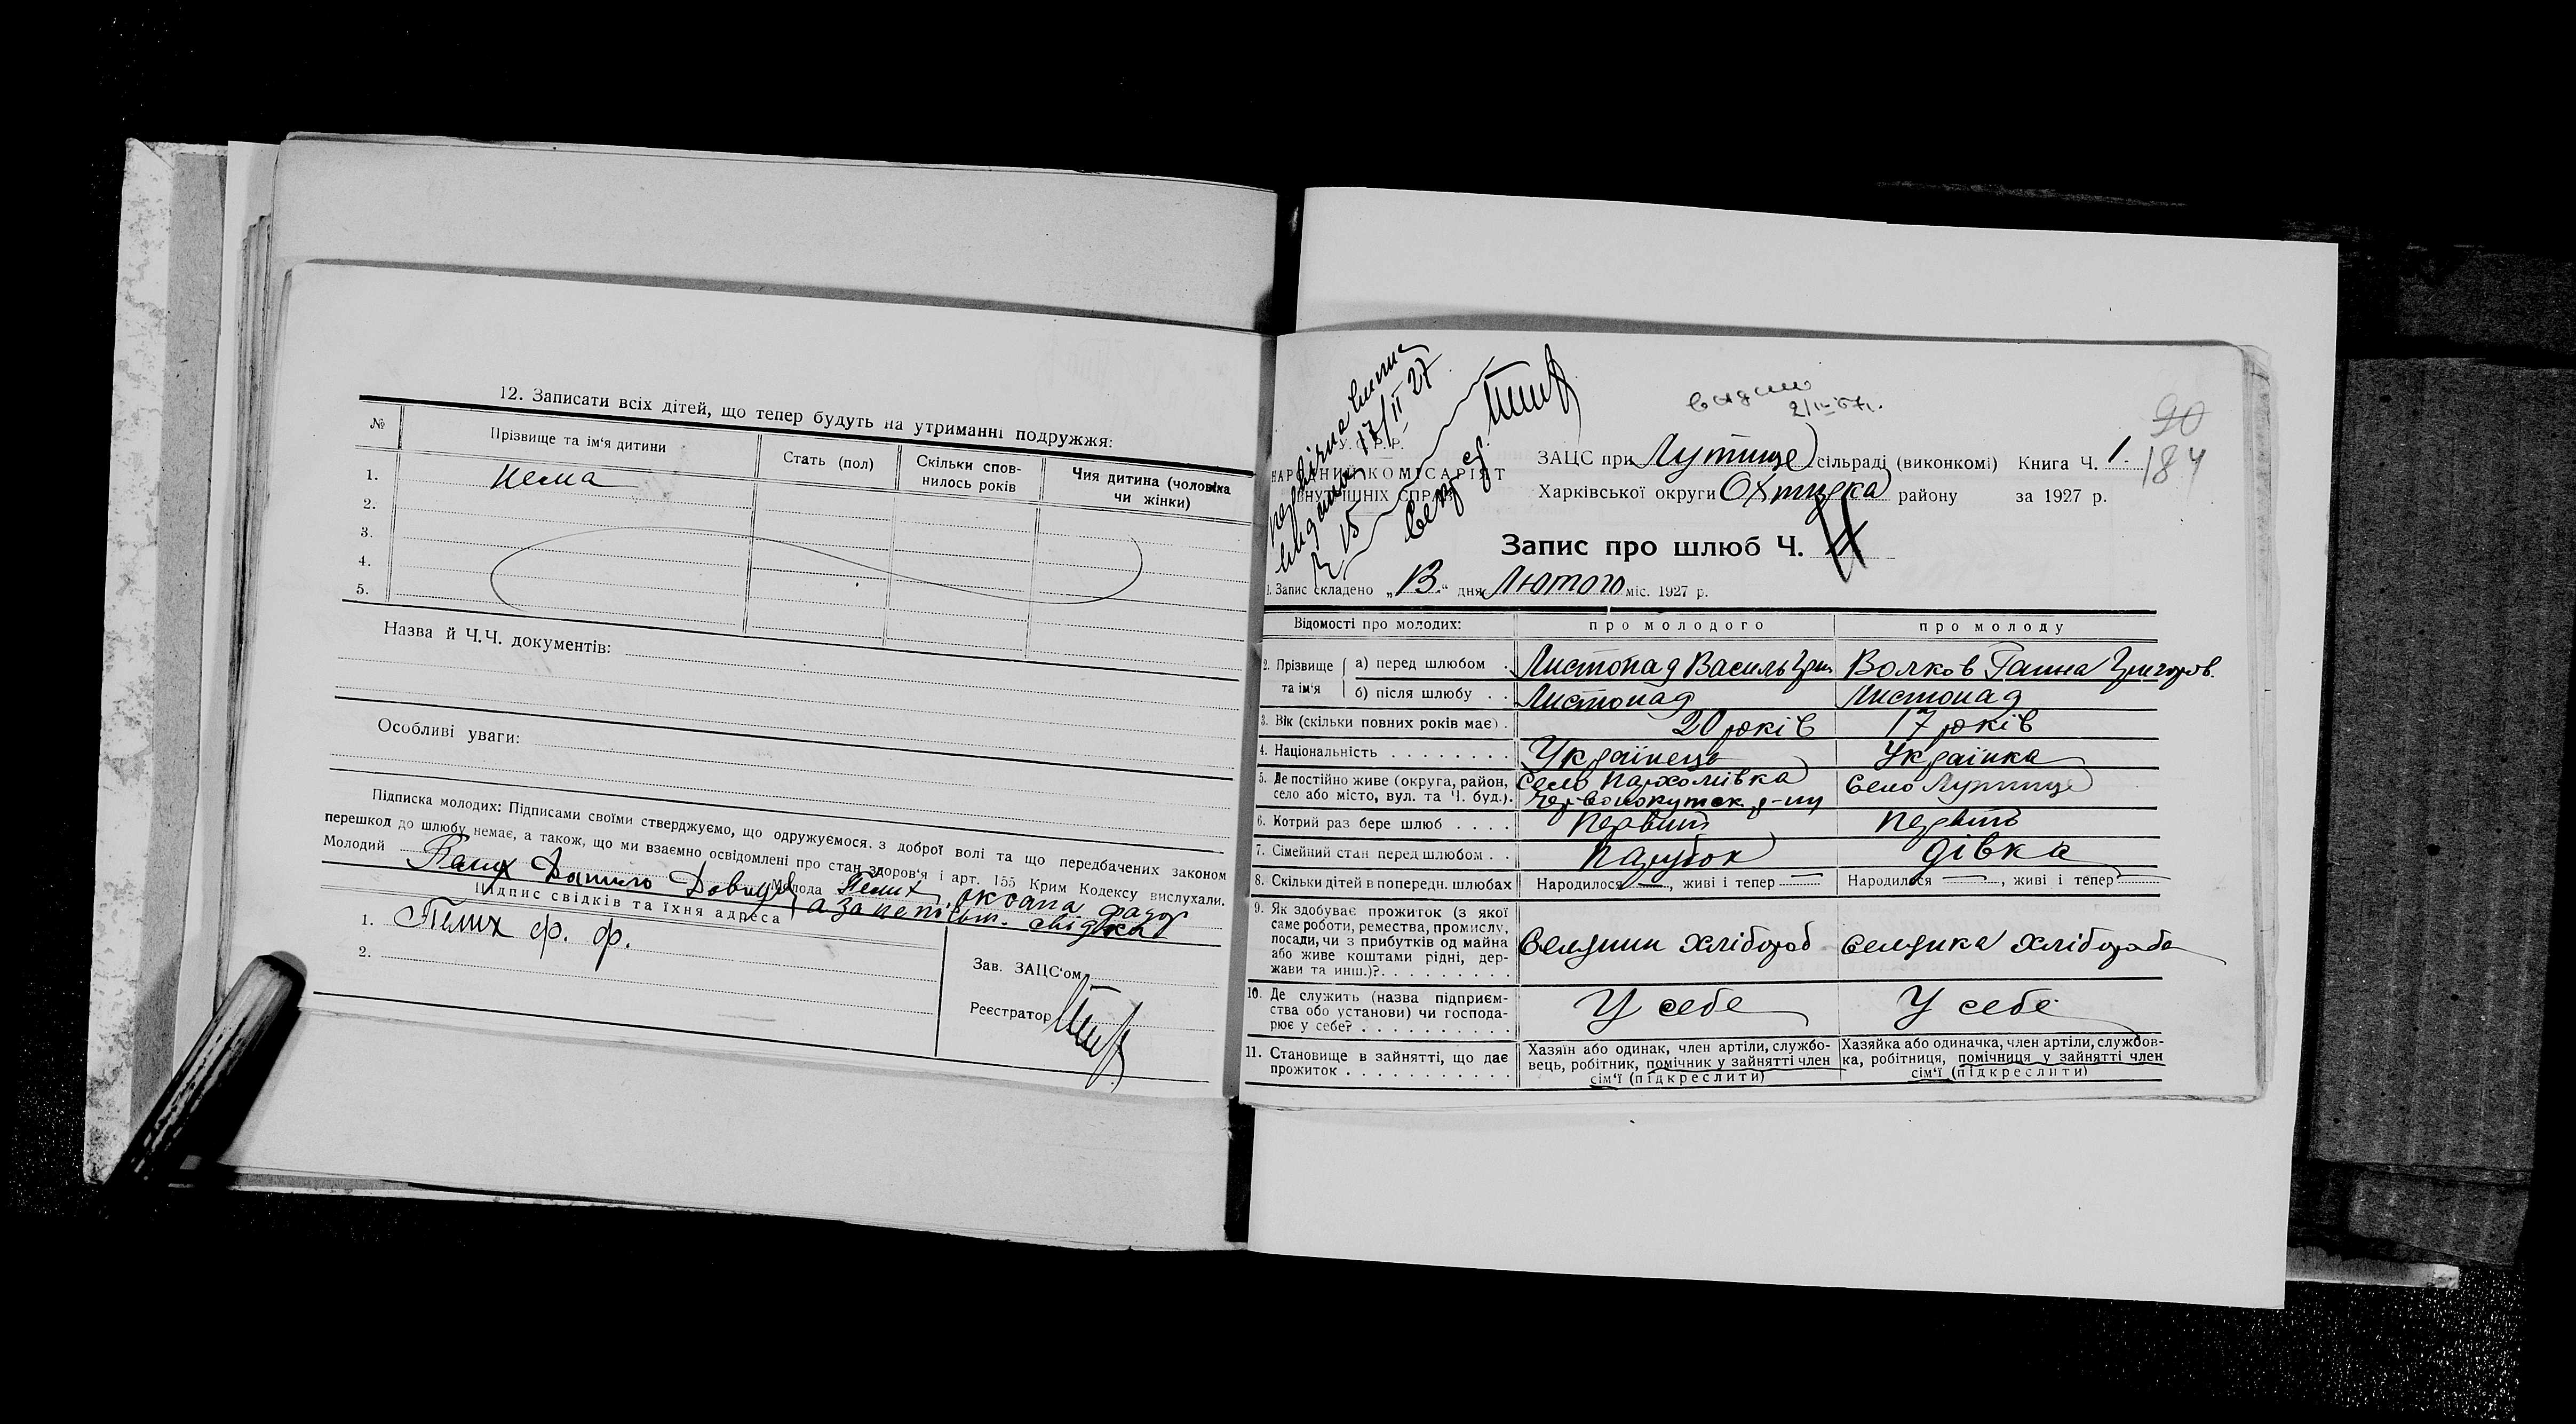 12. Записати всіх дітей, що тепер будуть на утриманні подружжя:
№ Прізвище та ім'я дитини Стать (пол) Скільки сповнилось років Чия дитина (чоловіка чи жінки)
1. нема
2.
3.
4.
5.
Назва й Ч.Ч. документів:
Особливі уваги:
Підписка молодих: Підписами своїми стверджуємо, що одружуємося з доброї волі та що передбачених законом
перешкод до шлюбу немає, а також, що ми взаємно освідомлені про стан здоров'я і арт. 155 Крим Кодексу вислухали.
Молодий Данило Молода Пелих, оксана
Підпис свідків та їхня адреса
1. Пелих ф. ф.
2.
Зав. ЗАЦС'ом
Реєстратор
17/II 27
У.С.Р.Р.
НАРОДНИЙ КОМІСАРІЯТ
ВНУТРІШНІХ СПРАВ
видано
90
184
ЗАЦС при Лутище сільраді (виконкомі) Книга Ч. 1
Харківської округи Охтирка району за 1927 р.
Запис про шлюб Ч. 4
1. Запис складено „13" дня Лютого міс. 1927 р.
Відомості про молодих: про молодого про молоду
2. Прізвище та ім'я а) перед шлюбом Листопад Василь Григ. Волков Ганна Григоров.
б) після шлюбу Листопад Листопад
3. Вік (скільки повних років має) 20 років 17 років
4. Національність Українець Українка
5. Де постійно живе (округа, район, Село Пархомівка Село Лутище
село або місто, вул. та Ч. буд.). Червонокутск. р-ну
6. Котрий раз бере шлюб Первий Первий
7. Сімейний стан перед шлюбом парубок дівка
8. Скільки дітей в попередн. шлюбах Народилося —, живі і тепер — Народилося —, живі і тепер —
9. Як здобуває прожиток (з якої
саме роботи, ремества, промислу,
посади, чи з прибутків од майна
або живе коштами рідні, держави та инш.)? Селянин хлібороб Селянка хлібороба
10. Де служить (назва підприємства або установи) чи господарює у себе? У себе У себе
11. Становище в зайнятті, що дає прожиток
Хазяїн або одинак, член артілі, службовець, робітник, помічник у зайнятті член сім'ї (підкреслити)
Хазяйка або одиначка, член артілі, службовка, робітниця, помічниця у зайнятті член сім'ї (підкреслити)